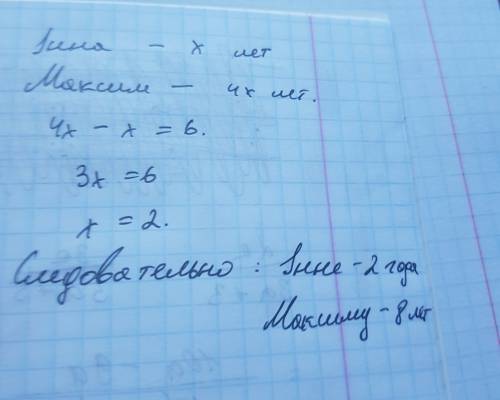 Інна – x лет
Максим – 4x лет.
4x – x = 6.
3x = 6
x = 2.
Следовательно : Інне – 2 года
Максиму – 8 лет